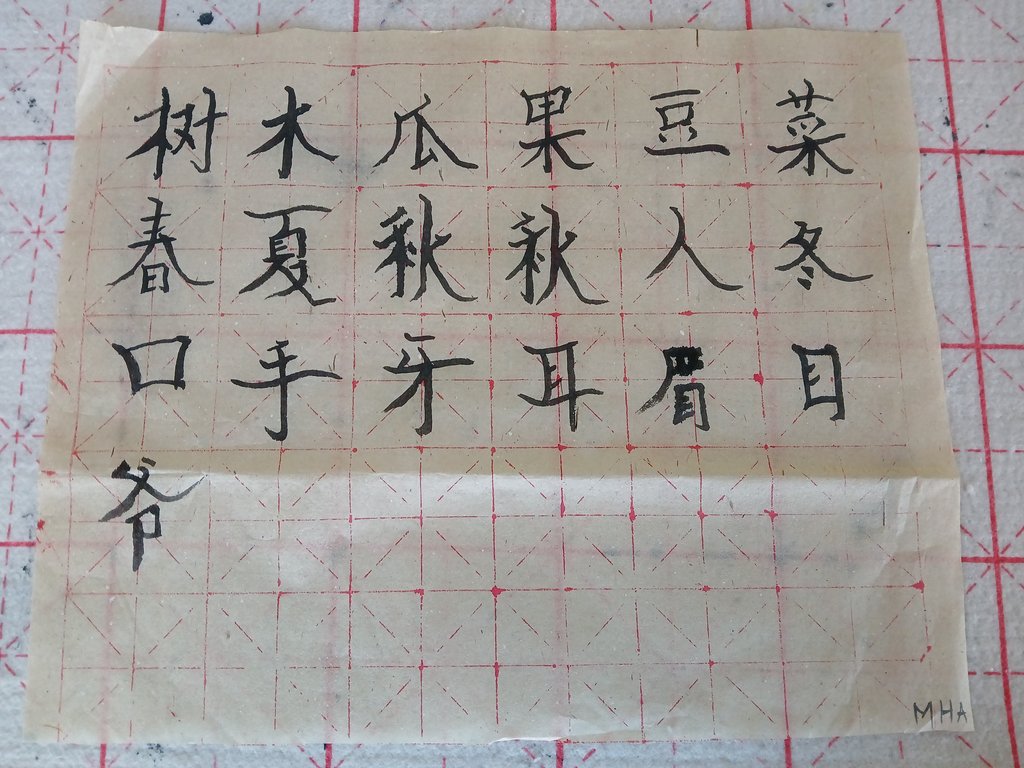 树木瓜果豆菜
春夏秋秋人冬
口手牙耳眉目
爷
MHA